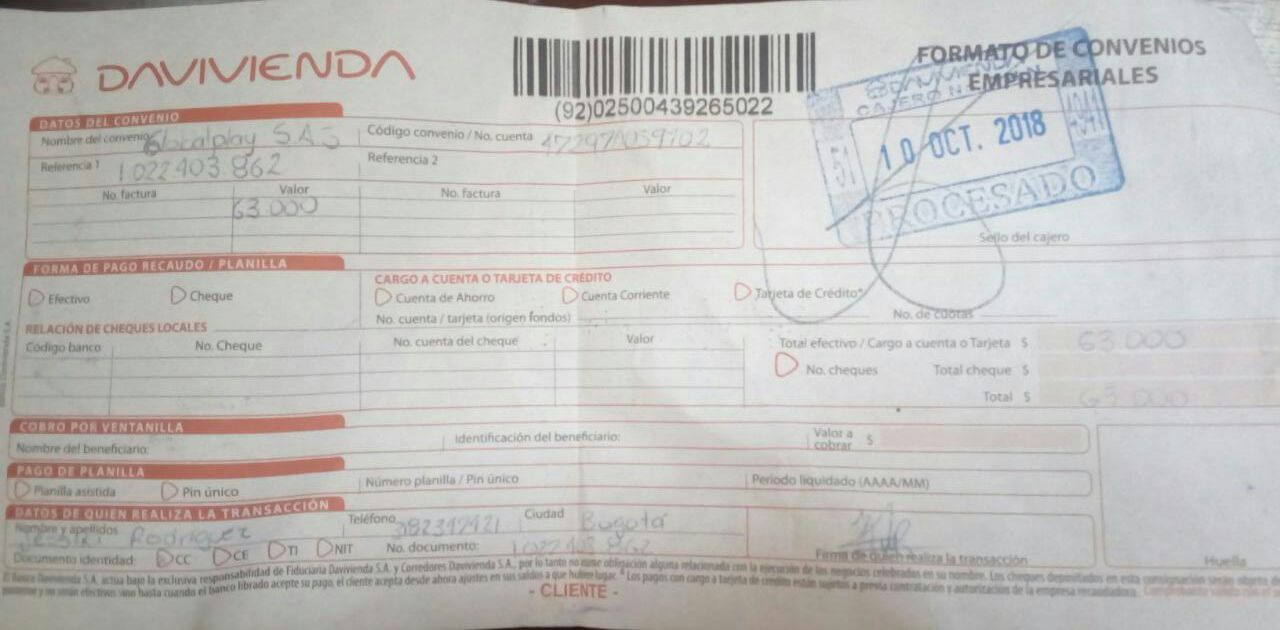 DAVIVIENDA
(92)02500439265022
FORMATO DE CONVENIOS
EMPRESARIALES
DAVIVIENDA
CAJERO
51
10 OCT. 2018
PROCESADO
Sello del cajero
DATOS DEL CONVENIO
Nombre del convenio Globalplay S.A.S Código convenio / No. cuenta
Referencia 1 1022403.862 Referencia 2
No. factura Valor No. factura Valor
63.000
FORMA DE PAGO RECAUDO / PLANILLA
Efectivo Cheque
CARGO A CUENTA O TARJETA DE CRÉDITO
Cuenta de Ahorro Cuenta Corriente Tarjeta de Crédito*
No. cuenta / tarjeta (origen fondos) No. de cuotas
RELACIÓN DE CHEQUES LOCALES
Código banco No. Cheque No. cuenta del cheque Valor
Total efectivo / Cargo a cuenta o Tarjeta $ 63.000
No. cheques Total cheque $
Total $ 63.000
COBRO POR VENTANILLA
Nombre del beneficiario: Identificación del beneficiario: Valor a cobrar $
PAGO DE PLANILLA
Planilla asistida Pin único Número planilla / Pin único Período liquidado (AAAA/MM)
DATOS DE QUIEN REALIZA LA TRANSACCIÓN
Nombre y apellidos Rodriguez Teléfono Ciudad Bogotá
Documento identidad: CC CE TI NIT No. documento: 1022403862 Firma de quien realiza la transacción Huella
El Banco Davivienda S.A. actua bajo la exclusiva responsabilidad de Fiduciaria Davivienda S.A. y Corredores Davivienda S.A., por lo tanto no tiene obligación alguna relacionada con la ejecución de los negocios celebrados en su nombre. Los cheques depositados en esta consignación serán objeto
posterior y no serán efectivos sino hasta cuando el banco librado acepte su pago, el cliente acepta desde ahora ajustes en sus saldos a que hubiere lugar. * Los pagos con cargo a tarjeta de crédito están sujetos a previa contratación y autorización de la empresa recaudadora.
- CLIENTE -